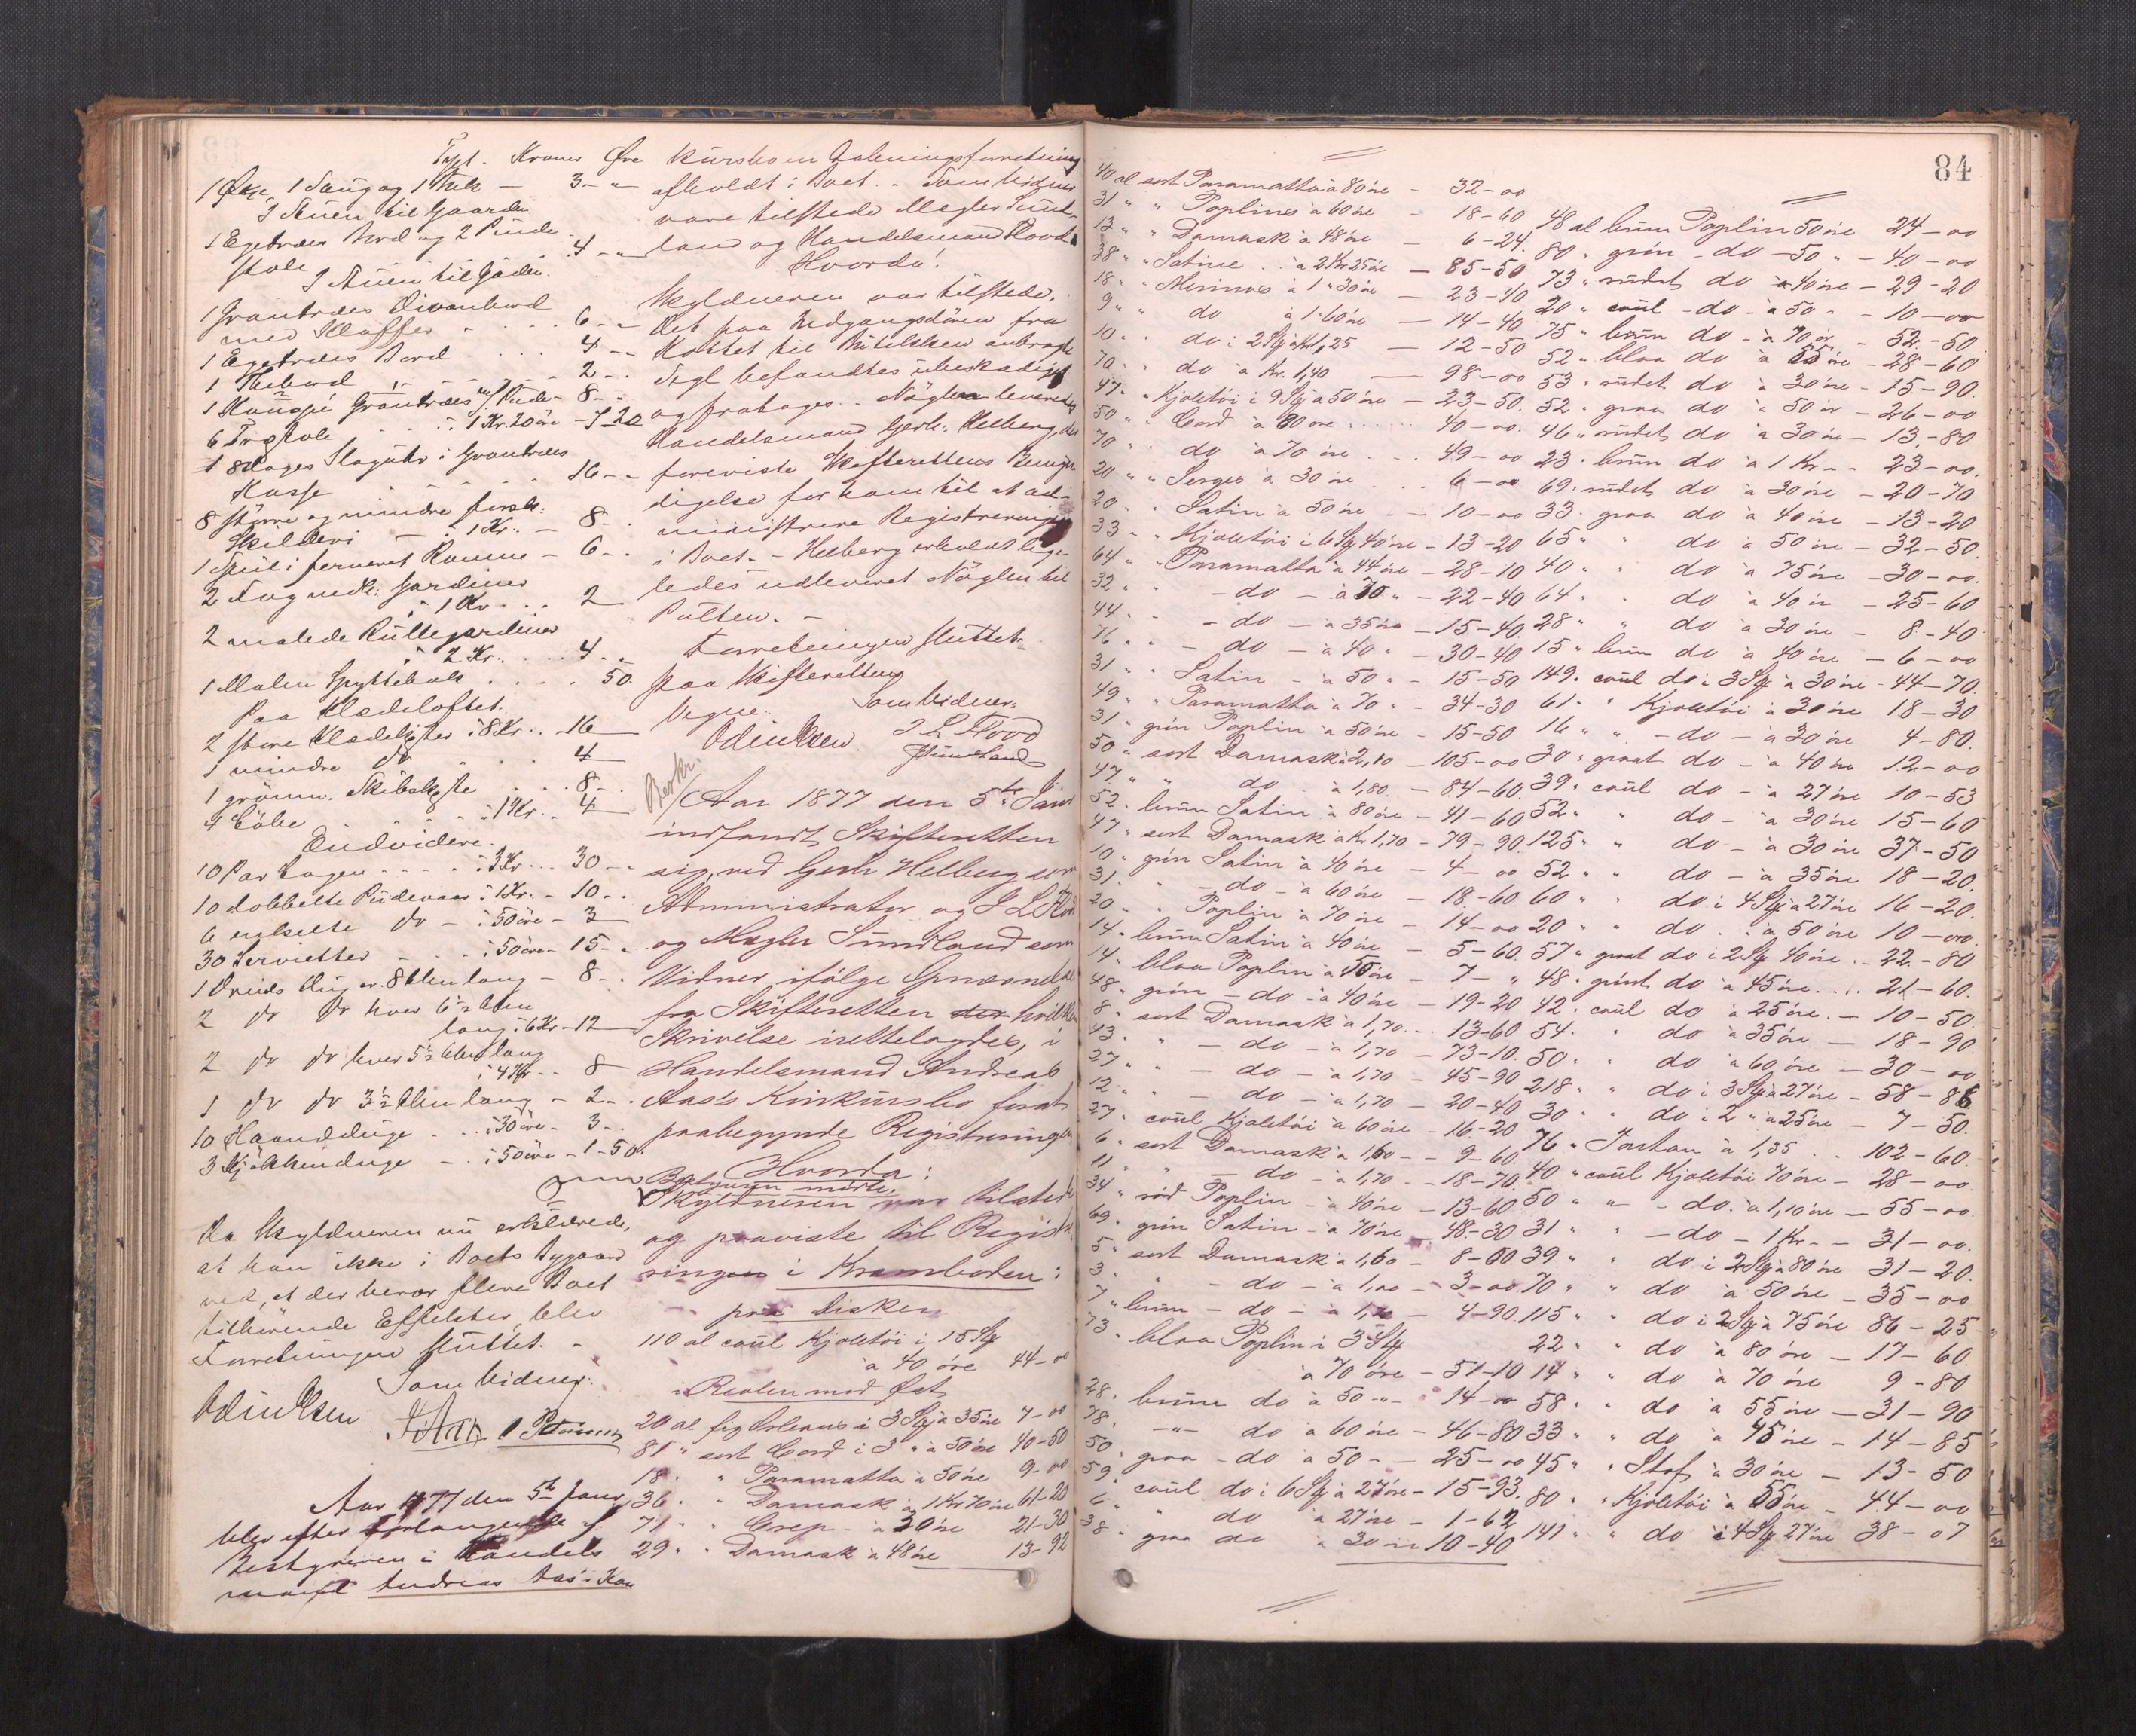 Kroner Øre
1 Øxe, 1 Saug og 1 - 3 - "
I Stuen til Gaarden
1 Egetræes Bord og 2 Pinde
stole - 4 - "
I Stuen til Gaden.
1 Grantræes Divanbord
med Skuffer - 6 - "
1 Egetræes Bord . . . . 4 - "
1 Thebord - 2 - .
1 Kanapé Grantræes m/ Pude - 8 - .
6 Træstole . . . à 1 Kr. 20 øre - 7-20
1 8 Dages Slaguhr i Grantræes
Kasse . . . 16 - "
8 større og mindre forsk:
Skilderi - à 1 Kr. - 8 - .
1 Speil i ferneret Ramme - 6 - .
2 Fag Gardiner
à 1 Kr . . . 2
2 malede Rullegardiner
à 2 Kr. . . . 4 - "
1 Malen Spyttebak . . . . 50
Paa Klædeloftet.
2 store Klædekister à 8 Kr. . - 16
1 mindre do . . . 4
1 grønm. Skibskiste . . . 8 - .
4 à 1 Kr. . . 4
Endvidere:
10 Par Lagen . . . . à 3 Kr . . . 30 - .
10 dobbelte Pudevaar à 1 Kr. - 10 - .
6 enkelte do - à 50 øre - 3
30 Servietter - . . . à 50 øre - 15 - .
1 Dreils Dug ca. 8 Alen lang - 8 - .
2 do do hver 6½ Alen
lang à 6 Kr - 12
2 do do hver 5½ Alen lang
à 4 Kr - - 8
1 do do 3½ Alen lang - 2 - .
10 Haandduge . . . à 30 øre - 3 - .
3 Kjøkkenduge - . à 50 øre - 1-50.
Da Skyldneren nu erklærede,
at han ikke i Boets Bygaard
ved, at der beror flere Boet
tilhørende Effekter, blev
Forretningen sluttet. -
Som Vidner:
Odin Olsen
Aar 1877 den 5te Janr
blev efter Forlangende af
Bestyreren i Handels
mand Andreas Aas's Kon
kursbo en Aabningsforretning
afholdt i Boet. - Som Vidner
vare tilstede Mægler Sund-
land og Handelsmand Flood
Hvorda!
Skyldneren var tilstede.
Det paa Indgangsdøren fra
anbragte
Segl befandtes ubeskadiget
og fratoges. - Nøglen leveredes
Handelsmand Gerh: Helberg, der
foreviste Skifterettens Bemyn-
digelse for ham til at ad-
ministrere Registreringen
i Boet. - Helberg erholdt lige-
ledes udleveret Nøglen til
Pulten. -
Forretningen sluttet.
paa Skifterettens
Vegne. Som Vidner:
Odin Olsen. J L Flood
Sundland
Aar 1877 den 5te Janr
indfandt Skifteretten
sig, ved Gerh Helberg som
Administrator og J L Flood
og Mægler Sundland som
Vidner, ifølge Opnævnelse
fra Skifteretten hvilken
Skrivelse isettelagdes, i
Handelsmand Andreas
Aas's Konkursbo forat
paabegynde Registreringen
Hvorda:
Skyldneren var tilstede
og paaviste til Registre
ringen i Kramboden:
paa Disken
110 al coul Kjoletøi i 15 Stk
à 40 øre 44-00
i Reolen mod Øst
20 al fig Orleans i 3 Stk à 35 øre 7-00
81 " sort Cord i 3 " à 50 øre 40-50
18 " " Paramatta à 50 øre 9-00
36 " " Damask à 1 Kr 70 øre 61-20
71 " " Crep - à 30 øre 21-30
29 " " Damask à 48 øre 13-92
84
40 al sort Paramatta à 80 øre - 32-00
31 " " Poplines à 60 øre - 18-60
13 " " Damask à 48 øre - 6-24.
38 " " Satine . . à 2 Kr 25 øre - 85-50
18 " " Merinos à 1 " 30 øre - 23-40
9 " " do à 1 " 60 øre - 14-40
10 " " do i 2 Stk à Kr 1,25 - 12-50
70 " " do à Kr. 1,40 - 98-00
47 " " Kjoletøi i 9 Stk à 50 øre - 23-50.
50 " " Cord à 80 øre . . . . 40-00.
70 " " do à 70 øre . . . 49-00
20 " " Serges à 30 øre . . . 6-00
20 " " Satin à 50 øre - - 10-00
33 " " Kjoletøi i 6 Stk 40 øre - 13-20
64 " " Paramatta à 44 øre - 28-10
32 " " - do - à 70 " - 22-40
44 " " - do - à 35 øre - 15-40
76 " " - do - à 40 " - 30-40
31 " " Satin - à 50 " - 15-50
49 " " Paramatta à 70 " - 34-30
31 " grøn Poplin à 50 øre - 15-50
50 " sort Damask à 2,10 - 105-00
47 " " do à 1,80. - 84-60.
52 " brun Satin à 80 øre - 41-60
47 " sort Damask à Kr 1,70 - 79-90.
10 " grøn Satin à 40 øre - 4-00
31 " " - do - à 60 øre - 18-60
20 " " Poplin à 70 øre - 14-00
14 " brun Satin à 40 øre - 5-60.
14 " blaa Poplin à 50 øre - 7-"
48 " grøn - do - à 40 øre - 19-20
8 " sort Damask à 1,70 - - 13-60
43 " " - do - à 1,70 - 73-10.
27 " " - do - à 1,70 - 45-90
12 " " - do - à 1,70 - 20-40
27 " coul Kjoletøi à 60 øre - 16-20
6 " sort Damask à 1,60 - - 9-60.
11 " " - do - à 1,70 - - 18-70
34 " rød Poplin - à 40 øre - 13-60
69 " grøn Satin - à 70 øre - 48-30
5 " sort Damask à 1,60 - 8-00
3 " " - do - à 1,00 - 3-00
7 " brun - do - à 1,70 - 4-90
73 " blaa Poplin i 3 Stk
à 70 øre - 51-10
28 " brune do à 50 - " - 14-00
78 " - " - do à 60 øre - 46-80
50 " graa - do à 50 - - 25-00
59 " coul do i 6 Stk à 27 øre - 15-93.
6 " " do à 27 øre - 1-62
38 " graa do à 30 øre 10-40
48 al brun Poplin 50 øre 24-00
80 " grøn - do - 50 " - 40-00
73 " rudet do à 40 øre - 29-20
20 " coul - do - à 50 - - 10-00
75 " brun do - à 70 øre - 52-50
52 " blaa do à 55 øre - 28-60
53 " rudet do à 30 øre - 15-90.
52 " graa do à 50 ør - 26-00
46 " rudet do à 30 øre - 13-80
23 " brun do à 1 Kr - - 23-00.
69 " rudet do à 30 øre - 20-70
33 " graa do à 40 øre - 13-20
65 " " do à 50 øre - 32-50.
40 " " do à 75 øre - 30-00.
64 " " do à 40 øre - 25-60
28 " " do à 30 øre - 8-40
15 " brun do à 40 øre - 6-00
149 " coul do i 3 Stk à 30 øre - 44-70.
61 " " Kjoletøi à 30 øre 18-30
16 " " - do - à 30 øre 4-80.
30 " graat do - à 40 øre 12-00
39 " coul do - à 27 øre 10-53
52 " " do - à 30 øre 15-60
125 " " do - à 30 øre 37-50
52 " " do - à 35 øre 18-20.
60 " " do i 4 Stk à 27 øre 16-20.
20 " " do . . à 50 øre 10-00.
57 " graat do i 2 Stk 40 øre . . 22-80
48 " grønt do à 45 øre . . . . 21-60.
42 " coul do à 25 øre. - 10-50.
54 " " do à 35 øre - 18-90
50 " " do à 60 øre - 30-00
218 " " do i 3 Stk à 27 øre - 58-86
30 " " do i 2 " à 25 øre - 7-50.
76 " Jartan à 1,35 . . 102-60.
40 " coul Kjoletøi 70 øre - 28-00
50 " " - do. à 1,10 øre - 55-00.
31 " " - do - 1 Kr - - 31-00.
39 " " do i 2 Stk à 80 øre 31-20.
70 " " do à 50 øre - 35-00
115 " " do i 2 Stk à 75 øre 86-25
22 " " do à 80 øre - 17-60.
14 " " do à 70 øre 9-80
58 " " do à 55 øre - 31-90
33 " " do à 45 øre - 14-85
45 " " Stof à 30 øre - 13-50
80 " " Kjoletøi à 55 øre - 44-00
141 " " do i 4 Stk 27 øre 38-07